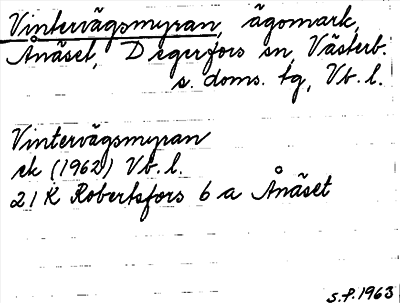 Vintervägsmyran, ägomark,
Ånäset, Degerfors sn, Västerb.
s. doms. tg, Vb. l.
Vintervägsmyran
ek (1962) Vb. l.
21 K Robertsfors 6 a Ånäset
S.P. 1963